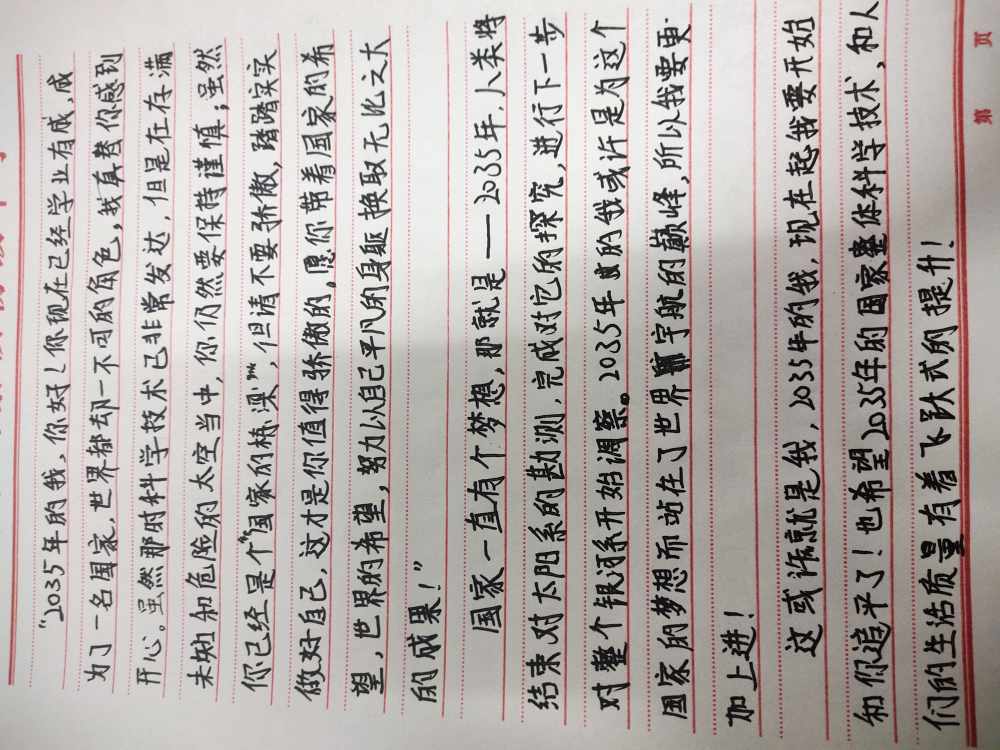 "2035年的我，你好！你现在已经学业有成，成
为了一名国家，世界都却一不可的角色，我真替你感到
开心。虽然那时科学技术已非常发达，但是在存满
未知和危险的太空当中，你仍然要保持谨慎；虽然
你已经是个"国家的栋梁"，但请不要骄傲，踏踏实实
做好自己，这才是你值得骄傲的，愿你带着国家的希
望，世界的希望，努力以自己平凡的身躯换取无比之大
的成果！"
国家一直有个梦想，那就是——2035年，人类将
结束对太阳系的勘测，完成对它的探究，进行下一步
对整个银河系开始调察。2035年的我或许是为这个
国家的梦想而站在了世界宇航的巅峰，所以我要更
加上进！
这或许就是我，2035年的我，现在起我要开始
和你追平了！也希望2035年的国家整体科学技术，和人
们的生活质量有着飞跃式的提升！
第 页